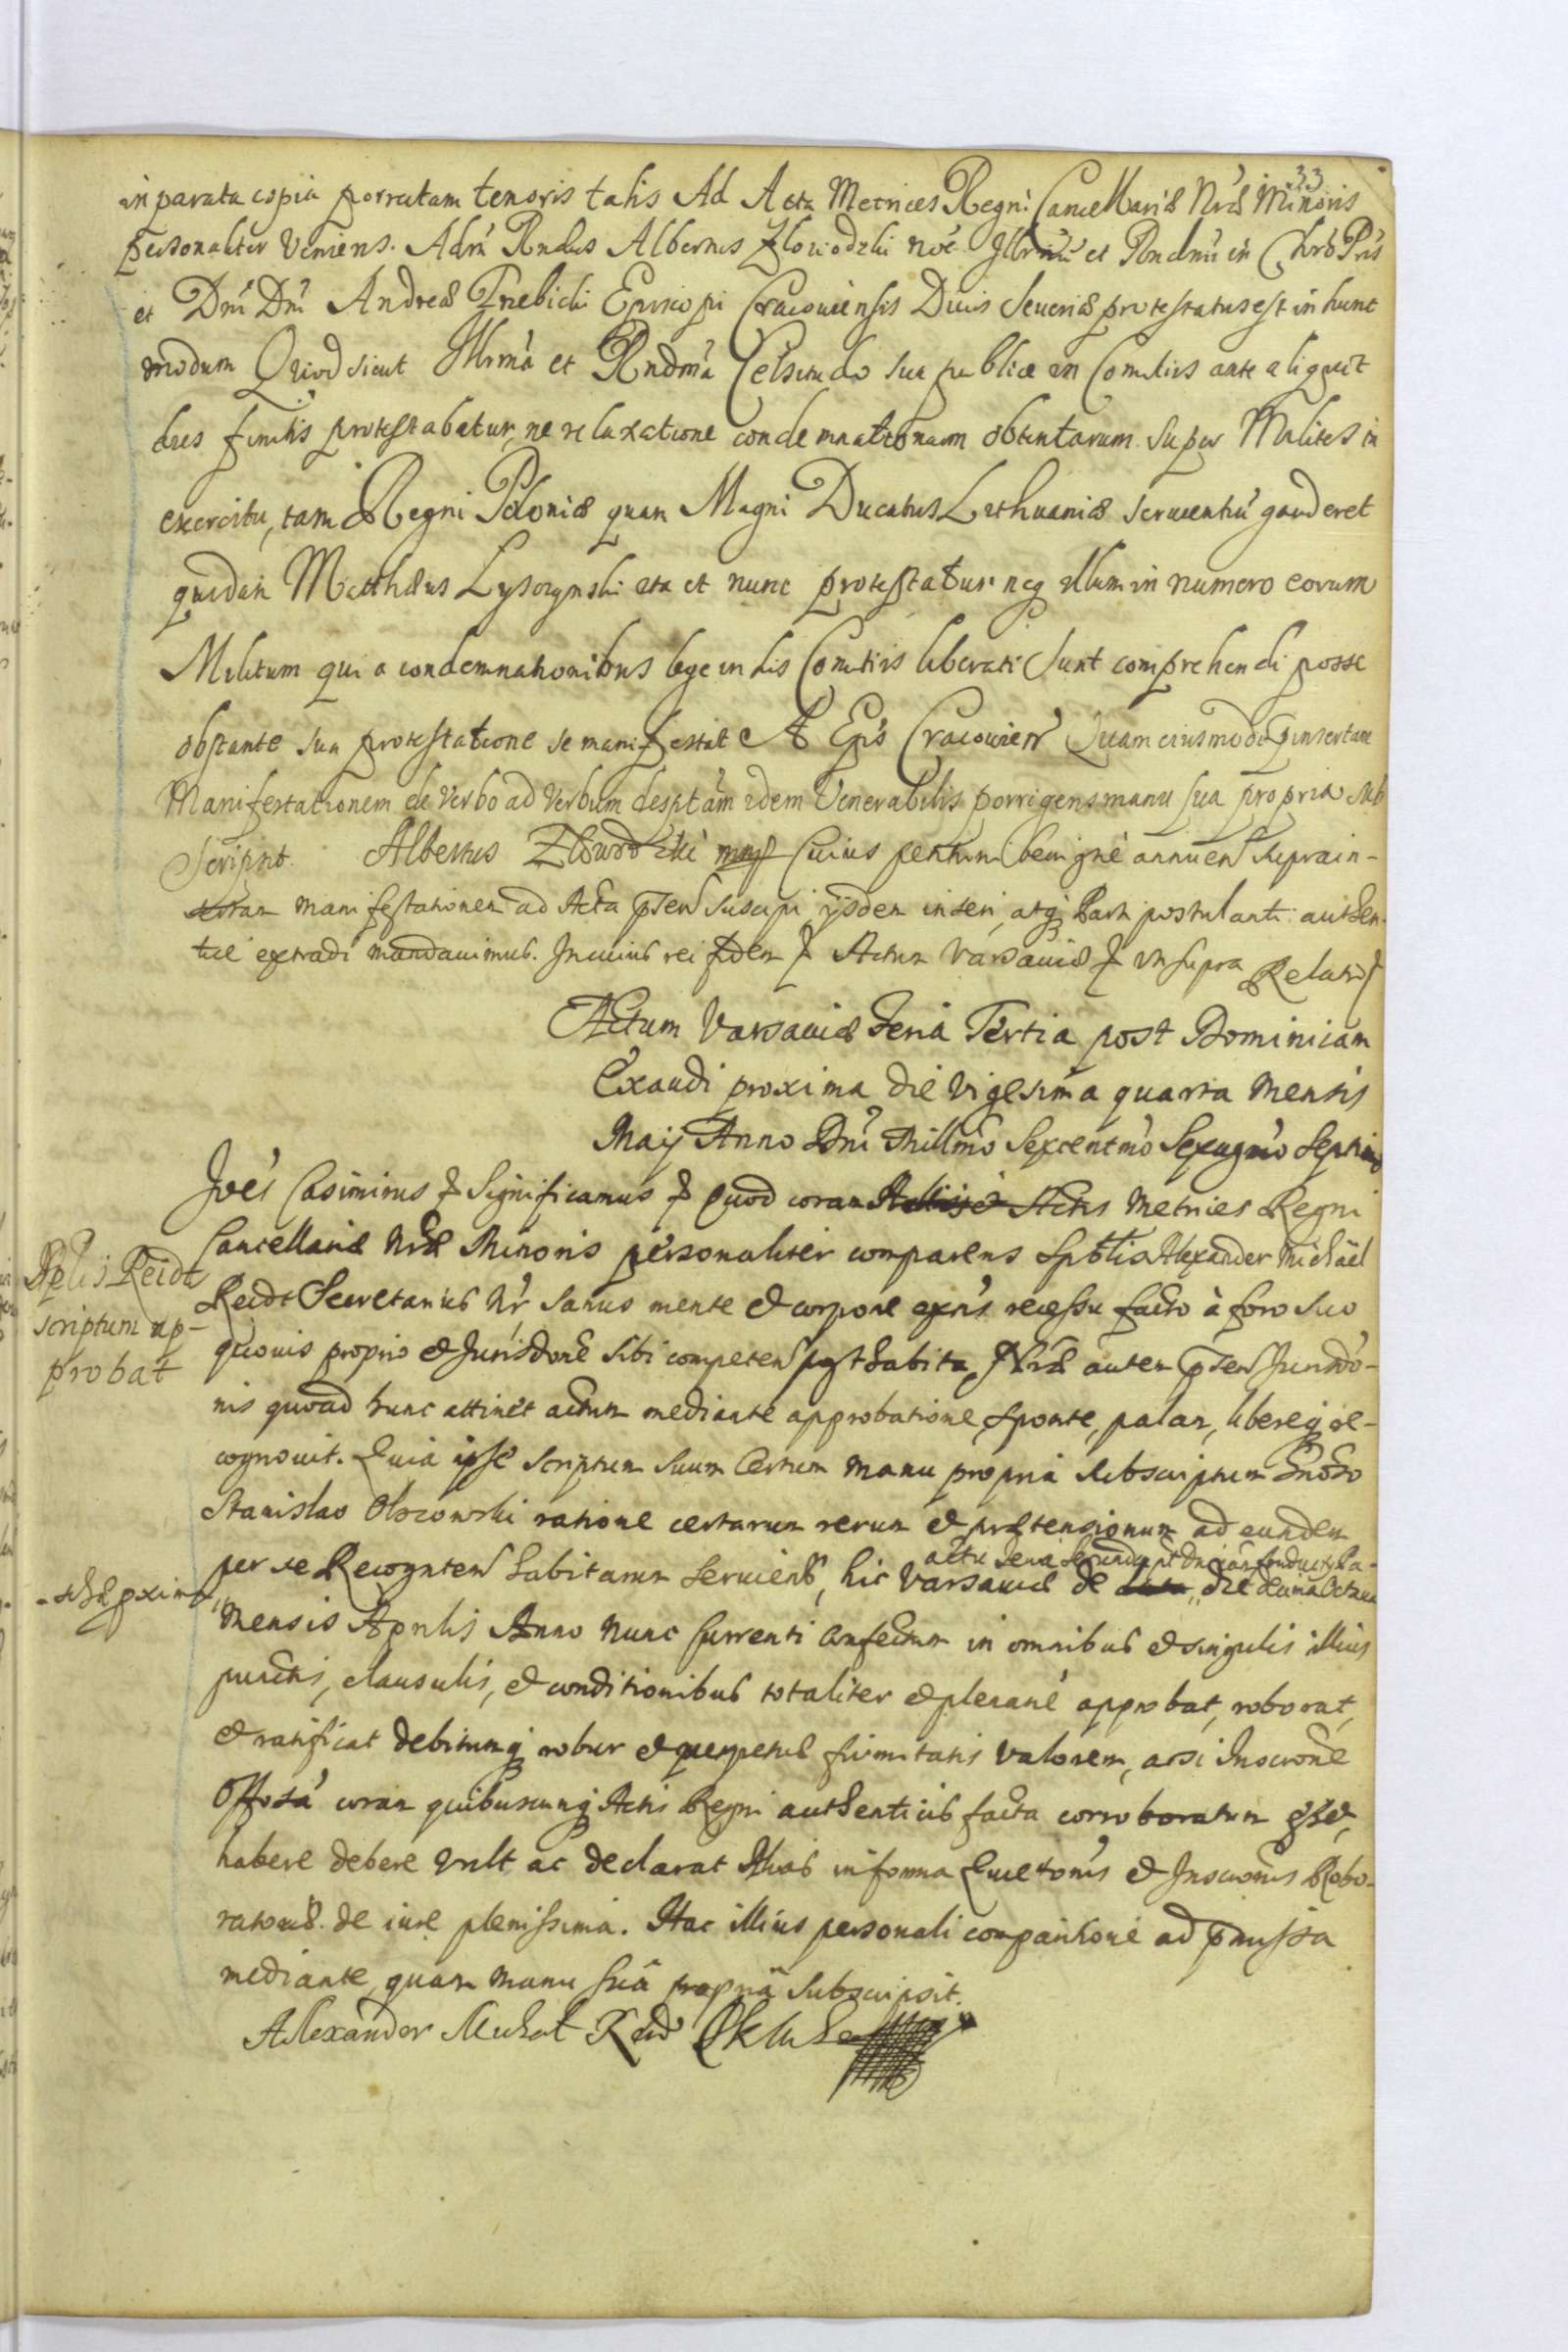 33
in parata copia porrectam tenoris talis Ad Acta Metrices Regni Cancellariæ Nræ Minoris
personaliter Veniens. Adm̃ Rndus Albertus Zlowodzki noe Illrmi et Rndmi in Chro Pris
et Dni Dni Andreæ Trebicki Episcopi Cracouiensis Ducis Seueriæ protestatus est in hunc
modum Quod sicut Illrma et Rndma Celsitudo sua publice in Comitiis ante aliquot
dies finitis protestabatur, ne relaxatione condemnationum obtentarum super Milites in
exercitu, tam Regni Poloniæ quam Magni Ducatus Lithuaniæ seruientiũ gauderet
quidam Matthæus Lysozynski ita et nunc protestatur neq illum in numero eorum
Militum qui a condemnationibus lege in his Comitiis liberati sunt comprehendi posse
obstante sua protestatione se manifestat A Eps Cracouien Quam eiusmodi insertam
Manifestationem de Verbo ad Verbum desptam idem Venerabilis porrigens manu sua propria sub
scripsit. Albertus Zlowodzki mp Cuius petitioni benigne annuen suprain-
sertam manifestationem ad Acta pñten suscipi, ijsdem inseri, atq Parti postulanti authen-
tice extradi mandauimus. In cuius rei fidem Actum Varsauiæ ut supra Relatio
Actum Varsauiæ Feria Tertia post Dominicam
Exaudi proxima die Vigesima quarta Mensis
Maij Anno Dni Millmo Sexcentmo Sexagmo Septimo
Joes Casimirus Significamus Quod coram Actis Metrices Regni
Cancellariæ Nræ Minoris personaliter comparens Spblis Alexander Michael
Reidt Secretarius Nr sanus mente et corpore exñs recessu facto à foro suo
quouis proprio et Jurisdone sibi competen posthabita, Nræ autem pñten Jurisdo-
nis quoad hunc attinet actum mediante approbatione, sponte, palam, libereq re-
cognouit. Quia ipse scriptum suum Certum manu propria subscriptum Gnoso
Stanislao Olszowski ratione certarum rerum et prætensionum ad eundem
per se Recognten habitarum seruiens, hic Varsauiæ de die decima Octaua
actu feria secunda post Dnicam Conductus Pa-
Mensis Aprilis Anno nunc currenti confectum in omnibus et singulis illius
punctis, clausulis, et conditionibus totaliter et plenarie approbat, roborat,
et ratificat debitumq robur et perpetuæ firmitatis valorem, acsi Inscrone
Offosa coram quibuscunq Actis Regni authenticis facta corroboratum esset,
habere debere vult ac declarat Alias in forma Quietonis et Inscronis Robo-
ratoriæ de iure plenissima. Hac illius personali comparitione ad pmissa
mediante, quam manu sua propria subscripsit.
Alexander Michał Reid
Splis Reidt
scriptum ap-
probat
-schæ pxima